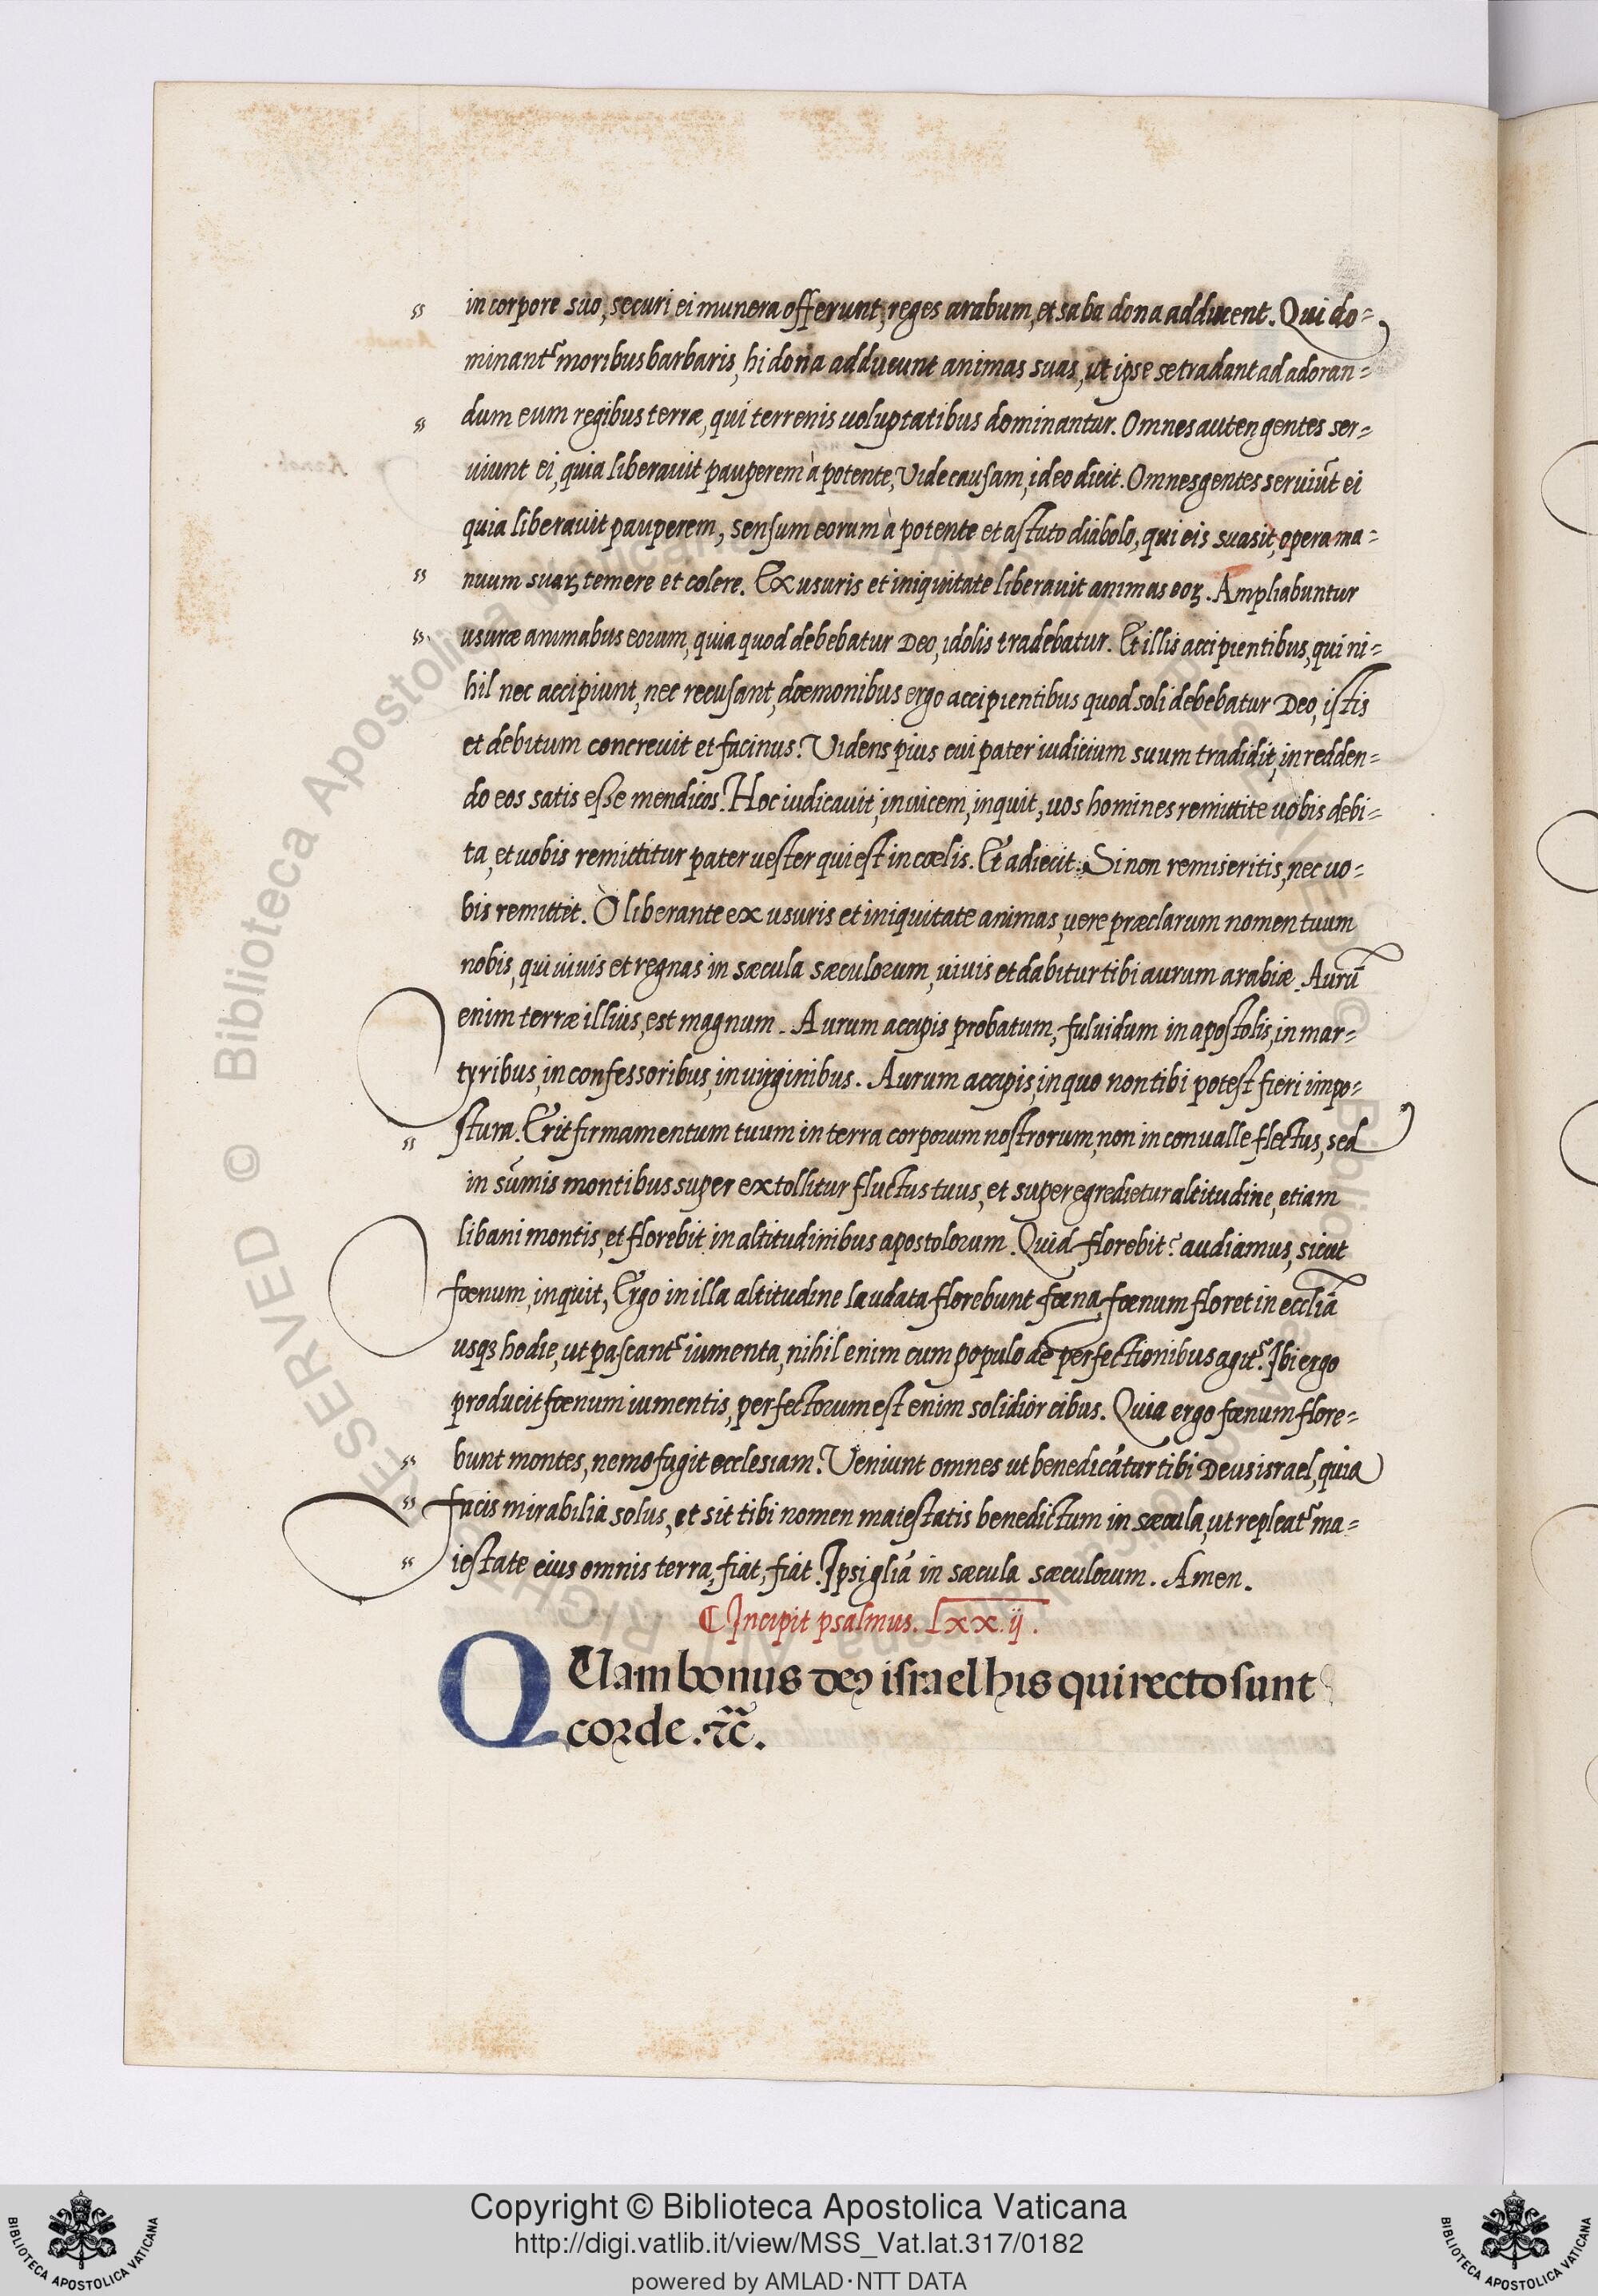 in corpore suo, securi ei munera offerunt, reges arabum, et saba dona adducent. Qui do=
minant᷑ moribus barbaris, hi dona adducunt animas suas, ut ipse se tradant ad adoran=
dum eum regibus terræ, qui terrenis uoluptatibus dominantur. Omnes auten gentes ser=
uiunt ei, quia liberauit pauperem à potente, Vide causam, ideo dicit. Omnes gentes seruiūt ei
quia liberauit pauperem, sensum eorum à potente et astuto diabolo, qui eis suasit, opera ma=
nuum suaꝝ temere et colere. Ex usuris et iniquitate liberauit animas eoꝝ. Ampliabuntur
usuræ animabus eorum, quia quod debebatur Deo, idolis tradebatur. Et illis accipientibus, qui ni=
hil nec accipiunt, nec recusant, dœmonibus ergo accipientibus quod soli debebatur Deo, istis
et debitum concreuit et facinus. Videns pius cui pater iudicium suum tradidit, in redden=
do eos satis esse mendicos. Hoc iudicauit, inuicem, inquit, uos homines remittite uobis debi=
ta, et uobis remittitur pater uester qui est in cœlis. Et adiecit. Si non remiseritis, nec uo=
bis remittet. Ò liberante ex usuris et iniquitate animas, uere præclarum nomen tuum
nobis, qui uiuis et regnas in sæcula sæculorum, uiuis et dabitur tibi aurum arabiæ. Aurū
enim terræ illius, est magnum. Aurum accipis probatum, fuluidum in apostolis, in mar=
tyribus, in confessoribus, in uirginibus. Aurum accipis, in quo non tibi potest fieri impo=
stura. Erit firmamentum tuum in terra corporum nostrorum, non in conualle flectus, sed
in sūmis montibus super extollitur fluctus tuus, et superegredietur altitudine, etiam
libani montis, et florebit in altitudinibus apostolorum. Quid florebit? audiamus, sicut
fœnum, inquit, Ergo in illa altitudine laudata florebunt fœna, fœnum floret in eccliā
usqꝫ hodie, ut pascant᷑ iumenta, nihil enim cum populo de perfectionibus agit᷑. Ibi ergo
producit fœnum iumentis, perfectorum est enim solidior cibus. Quia ergo fœnum flore=
bunt montes, nemo fugit ecclesiam. Veniunt omnes ut benedicātur tibi Deus israel, quia
facis mirabilia solus, et sit tibi nomen maiestatis benedictum in sæcula, ut repleat᷑ ma=
iestate eius omnis terra, fiat, fiat. Ipsi gliā in sæcula sæculorum. Amen.
Incipit psalmus. Lxx.ij.
QUam bonus deꝰ israel his qui recto sunt
corde. ⁊c̄.
Copyright © Biblioteca Apostolica Vaticana
http://digi.vatlib.it/view/MSS_Vat.lat.317/0182
powered by AMLAD·NTT DATA
BIBLIOTECA APOSTOLICA VATICANA
BIBLIOTECA APOSTOLICA VATICANA